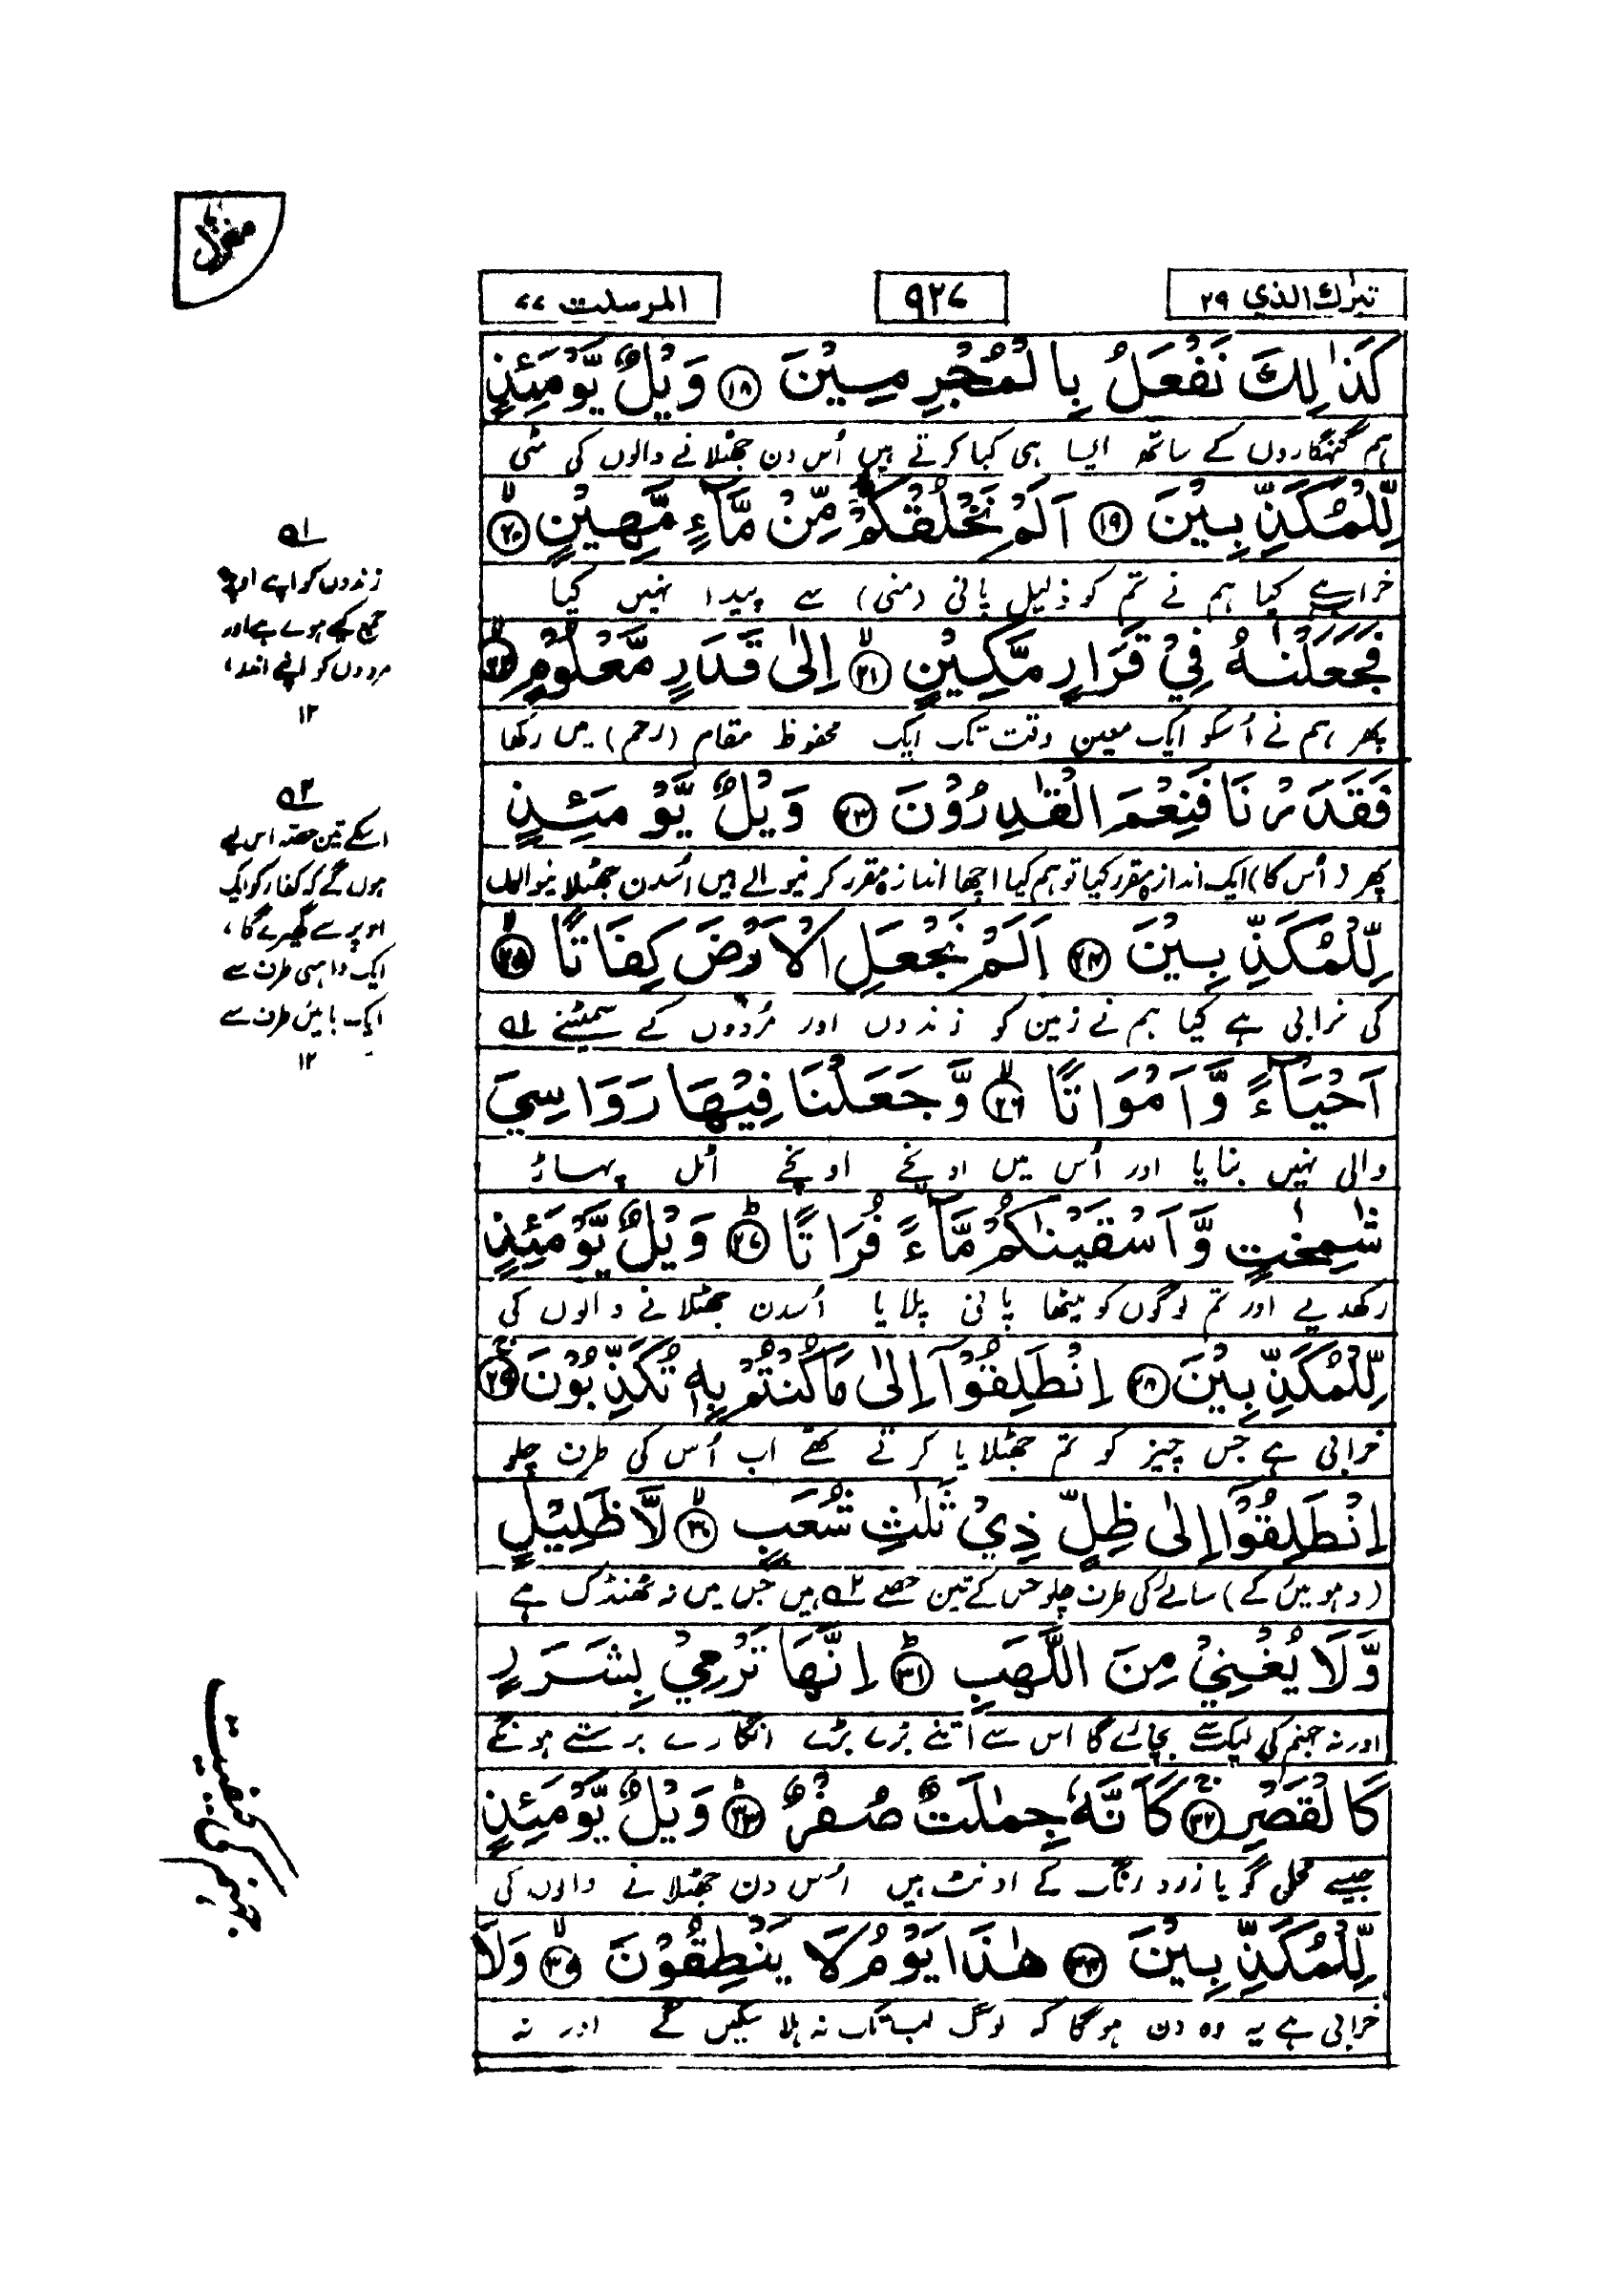 منزل
تبٰرك الذي ٢٩
٩٢٧
المرسلٰت ٧٧
كَذٰلِكَ نَفْعَلُ بِالْمُجْرِمِيْنَ ١٨ وَيْلٌ يَّوْمَئِذٍ
ہم گنہگاروں کے ساتھ ایسا ہی کیا کرتے ہیں اُس دن جھٹلانے والوں کی
لِّلْمُكَذِّبِيْنَ ١٩ اَلَمْ نَخْلُقْكُمْ مِّنْ مَّآءٍ مَّهِيْنٍ ٢٠
خرابی ہے کیا ہم نے تم کو ذلیل پانی (منی) سے پیدا نہیں کیا
فَجَعَلْنٰهُ فِيْ قَرَارٍ مَّكِيْنٍ ٢١ اِلٰى قَدَرٍ مَّعْلُوْمٍ ٢٢
پھر ہم نے اُسکو ایک معین وقت تک ایک محفوظ مقام (رحم) میں رکھا
فَقَدَرْنَا فَنِعْمَ الْقٰدِرُوْنَ ٢٣ وَيْلٌ يَّوْمَئِذٍ
پھر (اُس کا) ایک اندازہ مقرر کیا تو ہم کیا اچھا اندازہ مقرر کرنیوالے ہیں اُسدن جھٹلانیوالوں
لِّلْمُكَذِّبِيْنَ ٢٤ اَلَمْ نَجْعَلِ الْاَرْضَ كِفَاتًا ٢٥
کی خرابی ہے کیا ہم نے زمین کو زندوں اور مُردوں کے سمیٹنے ۱ے
اَحْيَآءً وَّاَمْوَاتًا ٢٦ وَّجَعَلْنَا فِيْهَا رَوَاسِيَ
والی نہیں بنایا اور اُس میں اونچے اونچے اٹل پہاڑ
شٰمِخٰتٍ وَّاَسْقَيْنٰكُمْ مَّآءً فُرَاتًا ٢٧ وَيْلٌ يَّوْمَئِذٍ
رکھدیے اور تم لوگوں کو میٹھا پانی پلایا اُسدن جھٹلانے والوں کی
لِّلْمُكَذِّبِيْنَ ٢٨ اِنْطَلِقُوْٓا اِلٰى مَا كُنْتُمْ بِهٖ تُكَذِّبُوْنَ ٢٩
خرابی ہے جس چیز کو تم جھٹلایا کرتے تھے اب اُس کی طرف چلو
اِنْطَلِقُوْٓا اِلٰى ظِلٍّ ذِيْ ثَلٰثِ شُعَبٍ ٣٠ لَّا ظَلِيْلٍ
(دھوئیں کے) سائے کی طرف چلو جس کے تین حصے ۲ے ہیں جس میں نہ ٹھنڈک ہے
وَّلَا يُغْنِيْ مِنَ اللَّهَبِ ٣١ اِنَّهَا تَرْمِيْ بِشَرَرٍ
اور نہ جہنم کی لپک سے بچائے گا اس سے اتنے بڑے بڑے انگارے برستے ہونگے
كَالْقَصْرِ ٣٢ كَاَنَّهٗ جِمٰلَتٌ صُفْرٌ ٣٣ وَيْلٌ يَّوْمَئِذٍ
جیسے محل گویا زرد رنگ کے اونٹ ہیں اُس دن جھٹلانے والوں کی
لِّلْمُكَذِّبِيْنَ ٣٤ هٰذَا يَوْمُ لَا يَنْطِقُوْنَ ٣٥ وَلَا
خرابی ہے یہ وہ دن ہوگا کہ لوگ لب تک نہ ہلا سکیں گے اور نہ
۱ے
زندوں کو اپنے اوپر
جمع کیے ہوے ہے اور
مردوں کو اپنے اندر،
۱۲
۲ے
اسکے تین حصہ اس لیے
ہوں گے کہ کفار کو ایک
اوپر سے گھیرے گا،
ایک داہنی طرف سے
ایک بائیں طرف سے
۱۲
جہنم کی کیفیت